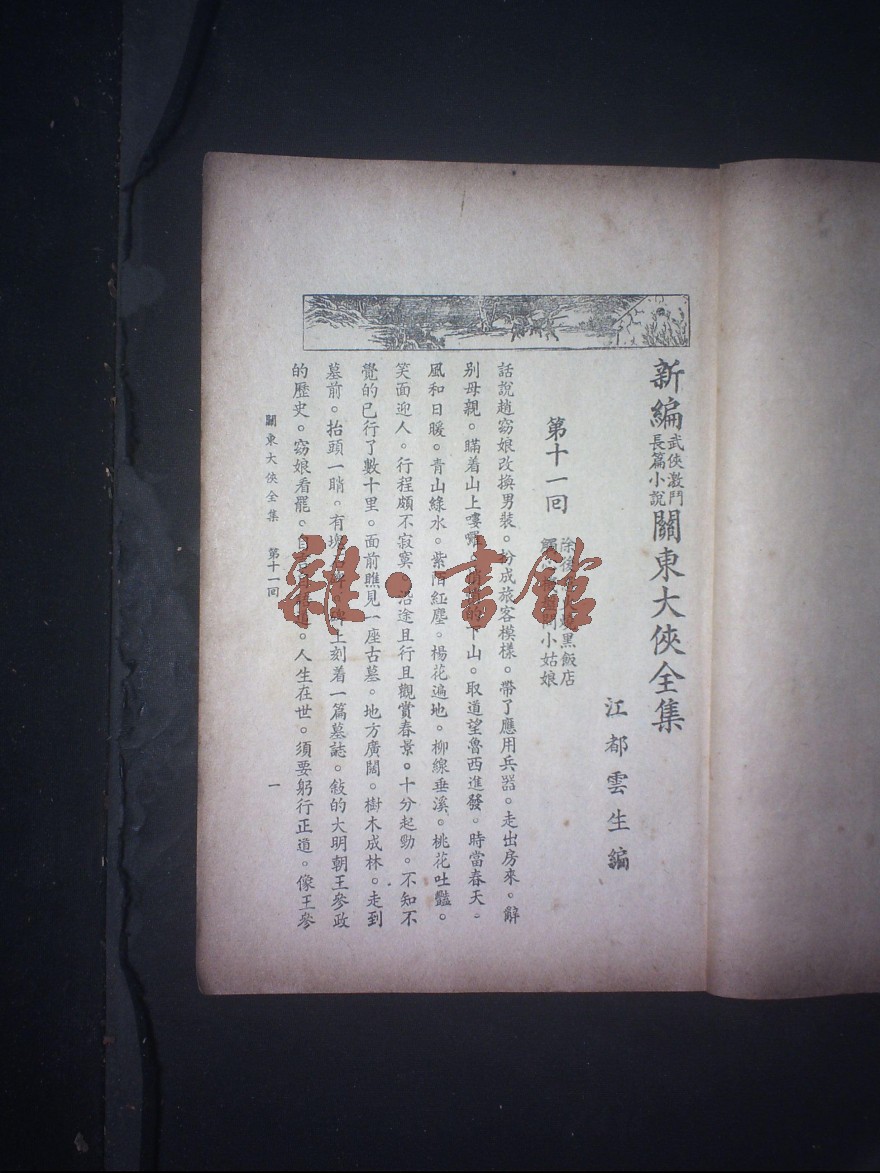 新編武俠激鬥長篇小說關東大俠全集
江都雲生編
第十一回
除 黑飯店
小姑娘
話說趙窈娘改換男裝。扮成旅客模樣。帶了應用兵器。走出房來。辭
別母親。瞞着山上嘍囉。 下山。取道望魯西進發。時當春天。
風和日暖。青山綠水。紫陌紅塵。楊花遍地。柳線垂溪。桃花吐豔。
笑面迎人。行程頗不寂寞。沿途且行且觀賞春景。十分起勁。不知不
覺的已行了數十里。面前瞧見一座古墓。地方廣闊。樹木成林。走到
墓前。抬頭一睄。有塊 上刻着一篇墓誌。敍的大明朝王參政
的歷史。窈娘看罷。自 。人生在世。須要躬行正道。像王參
關東大俠全集 第十一回 一
雜·書館